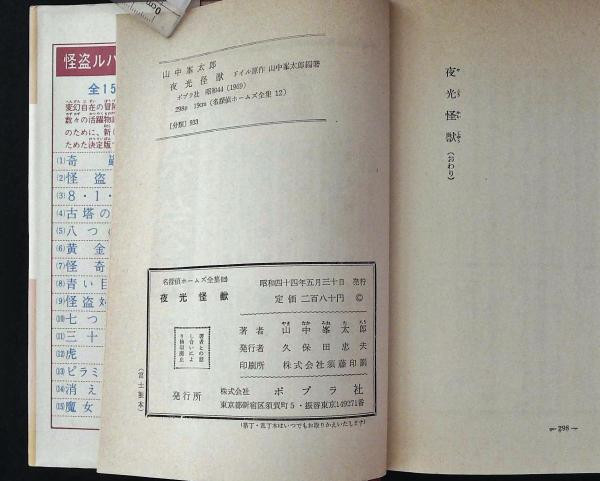 夜光怪獣(おわり)
― 298 ―
山中峯太郎
夜光怪獣 ドイル原作 山中峯太郎編著
ポプラ社 昭和44 (1969)
298p 19cm (名探偵ホームズ全集 12)
[分類] 933
名探偵ホームズ全集
夜光怪獣
昭和四十四年五月三十日 発行
定価 二百八十円 ©
著者との話
し合いによ
り検印廃止
著者 山中峯太郎
発行者 久保田忠夫
印刷所 株式会社須藤印刷
発行所 株式会社 ポプラ社
東京都新宿区須賀町5・振替東京149271番
(富士製本)
(落丁・乱丁本はいつでもお取りかえいたします)
怪盗ルパ
全15
変幻自在の冒
数々の活躍物
のために、新し
ためた決定版で
(1)奇
(2)怪盗
(3)8・1・
(4)古塔の
(5)八つ
(6)黄金
(7)怪奇
(8)青い目
(9)怪盗対
(10)七つ
(11)三十
(12)虎
(13)ピラミ
(14)消え
(15)魔女